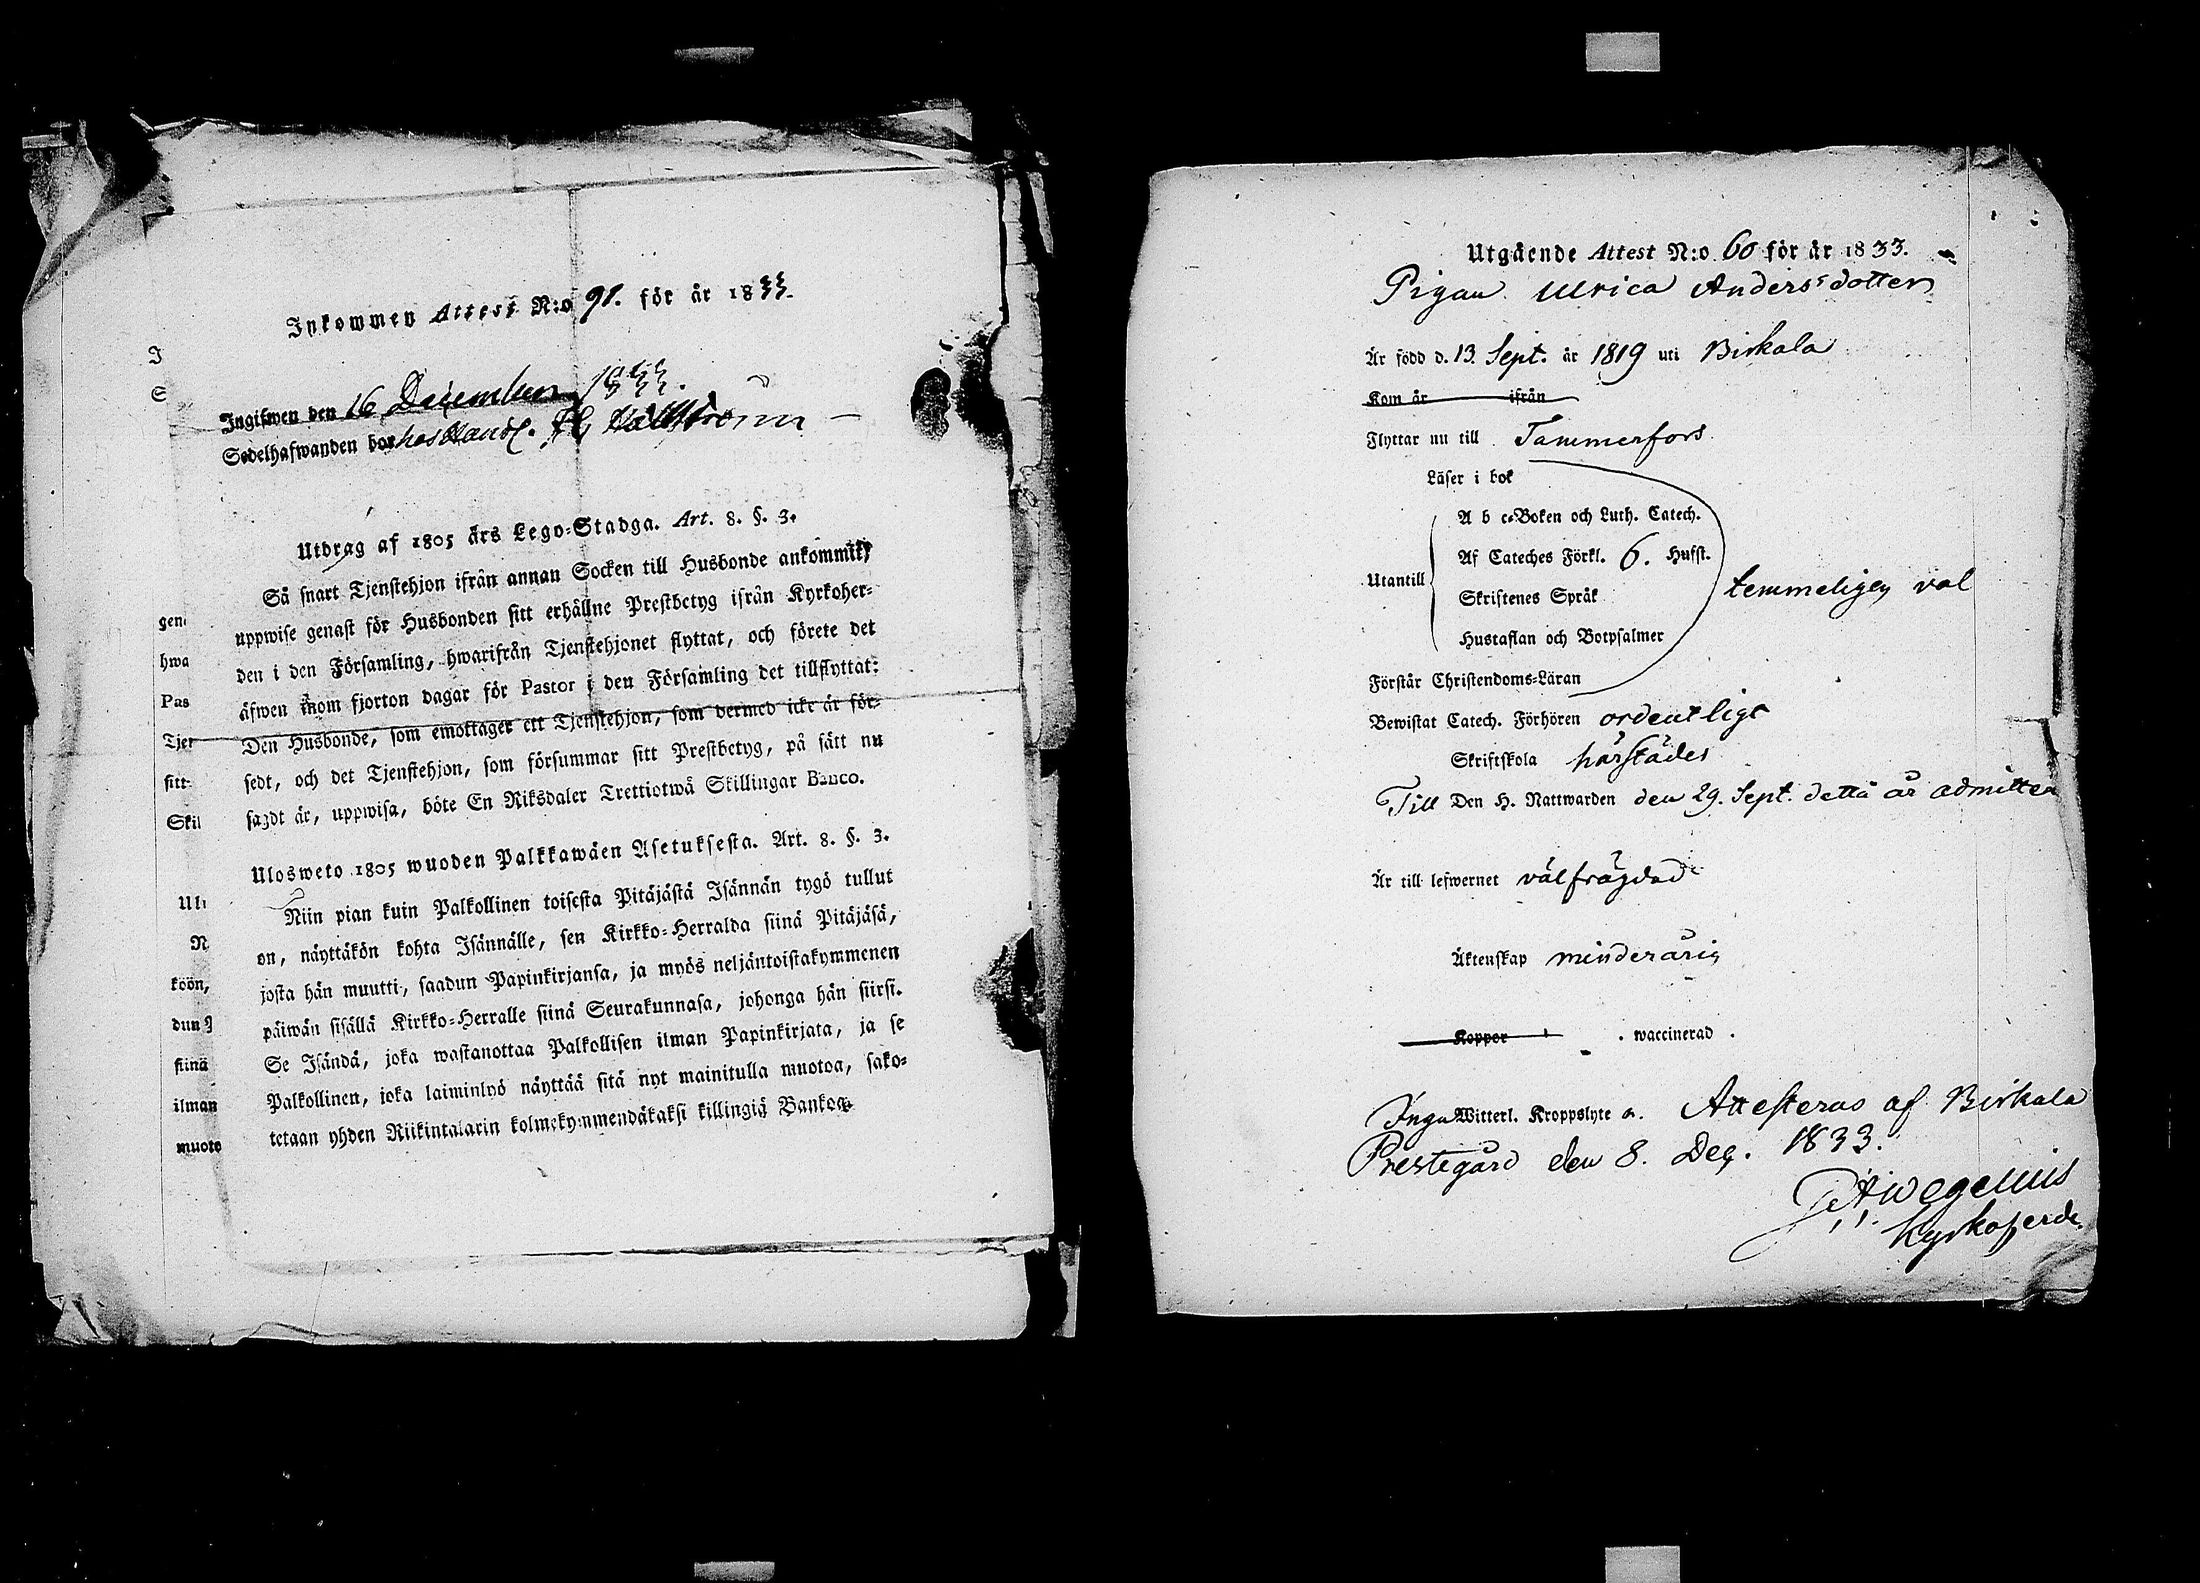 Inkommen Attest N:o 91. för år 1833.
I
S
Ingifwen den 16 December 1833.
Sedelhafwanden bor hos Handl.
Utdrag af 1805 års Lego-Stadga. Art. 8. §. 3.
Så snart Tjenstehjon ifrån annan Socken till Husbonde ankommit,
uppwise genast för Husbonden sitt erhållne Prestbetyg ifrån Kyrkoher-
den i den Församling, hwarifrån Tjenstehjonet flyttat, och förete det
äfwen inom fjorton dagar för Pastor i den Församling det tillflyttat:
Den Husbonde, som emottager ett Tjenstehjon, som dermed icke är för-
sedt, och det Tjenstehjon, som försummar sitt Prestbetyg, på sätt nu
sagdt är, uppwisa, böte En Riksdaler Trettiotwå Skillingar Banco.
Ulosweto 1805 wuoden Palkkawäen Asetuksesta. Art. 8. §. 3.
Niin pian kuin Palkollinen toisesta Pitäjästä Isännän tygö tullut
on, näyttäkön kohta Isännälle, sen Kirkko-Herralda siinä Pitäjäsä,
josta hän muutti, saadun Papinkirjansa, ja myös neljäntoistakymmenen
päiwän sisällä Kirkko-Herralle siinä Seurakunnasa, johonga hän siirsi.
Se Isändä, joka wastanottaa Palkollisen ilman Papinkirjata, ja se
Palkollinen, joka laiminlyö näyttää sitä nyt mainitulla muotoa, sako-
tetaan yhden Riikintalarin kolmekymmendäkaksi killingiä Bankoa.
gen
hwa
Pas
Tjer
sitt
Skil
Ul
N
köön,
dun
siinä
ilman
muoto
Utgående Attest N:o 60 för år 1833.
Pigan Ulrica Andersdotter
Är född d. 13 Sept. år 1819 uti Birkala
Kom år ifrån
Flyttar nu till Tammerfors
Läser i bok
Utantill
A b c-Boken och Luth. Catech.
Af Cateches Förkl. 6. Hufst.
Skriftenes Språk
Hustaflan och Botpsalmer
temmeligen väl
Förstår Christendoms-Läran
Bewistat Catech. Förhören ordentligt
Skriftskola härstädes
Till Den H. Nattwarden den 29. Sept. detta år admitter
Är till lefwernet välfrägdad
Äktenskap minderårig
Koppor waccinerad
Inga Witterl. Kroppslyte n. Attesteras af Birkala
Prestegård den 8. Dec. 1833.
Wegelius
Kyrkoherde.